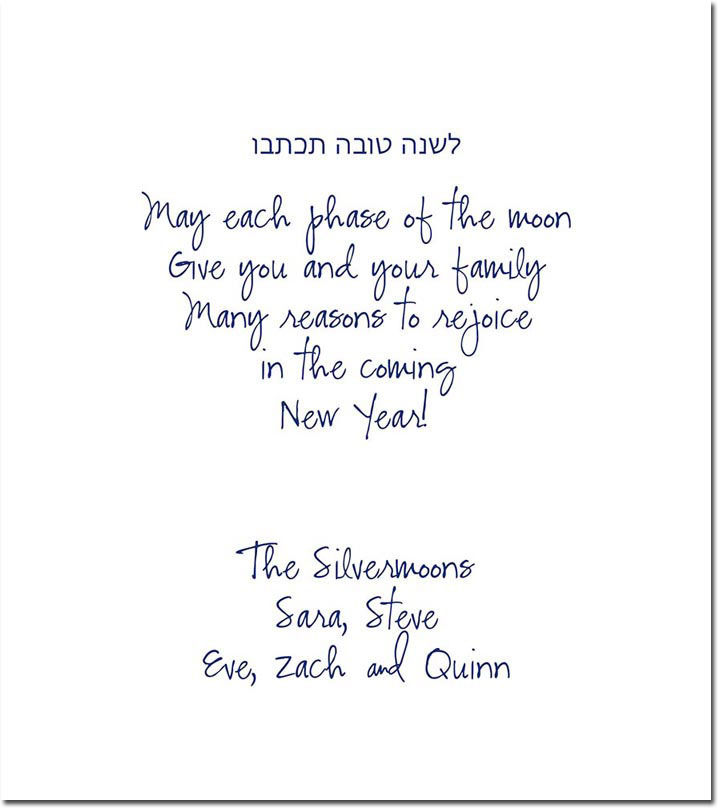 לשנה טובה תכתבו
May each phase of the moon
Give you and your family
Many reasons to rejoice
in the coming
New Year!
The Silvermoons
Sara, Steve
Eve, Zach and Quinn